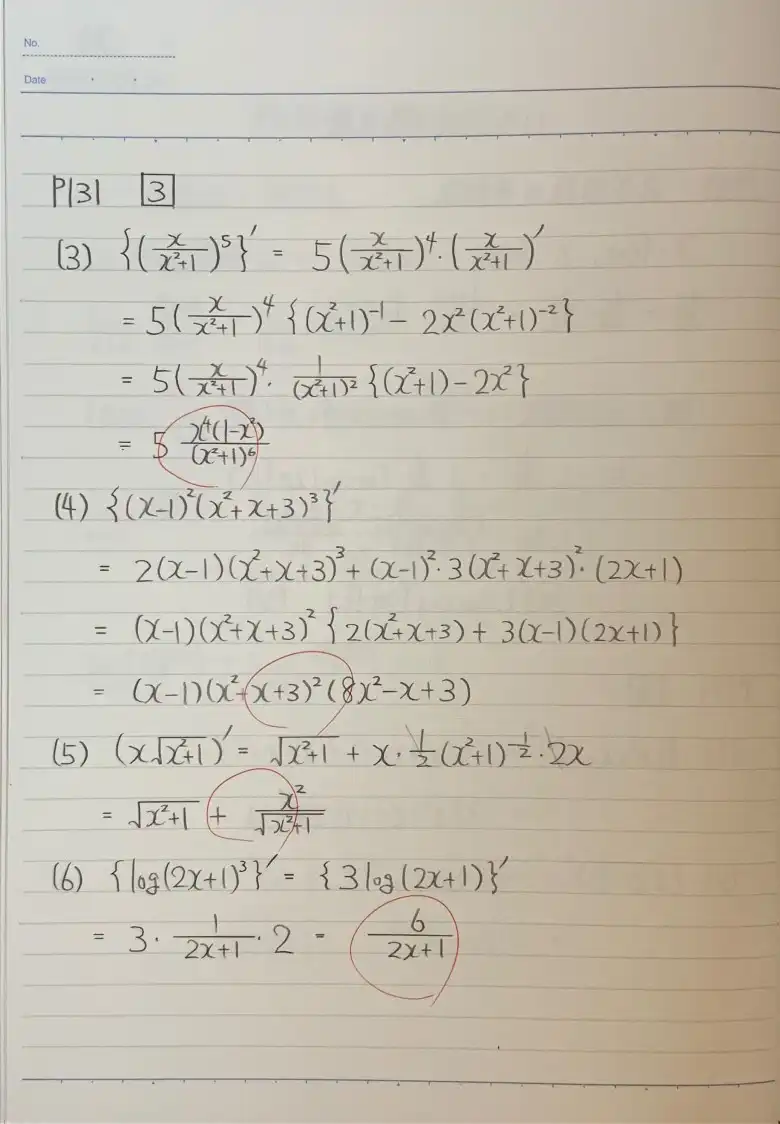 No.
Date
P131 3
(3) {(x/(x²+1))⁵}′ = 5(x/(x²+1))⁴·(x/(x²+1))′
= 5(x/(x²+1))⁴{(x²+1)⁻¹ − 2x²(x²+1)⁻²}
= 5(x/(x²+1))⁴·1/(x²+1)²{(x²+1)−2x²}
= 5 x⁴(1−x²)/(x²+1)⁶
(4) {(x−1)²(x²+x+3)³}′
= 2(x−1)(x²+x+3)³ + (x−1)²·3(x²+x+3)²·(2x+1)
= (x−1)(x²+x+3)²{2(x²+x+3) + 3(x−1)(2x+1)}
= (x−1)(x²+x+3)²(8x²−x+3)
(5) (x√(x²+1))′ = √(x²+1) + x·1/2(x²+1)^(−1/2)·2x
= √(x²+1) + x²/√(x²+1)
(6) {log(2x+1)³}′ = {3log(2x+1)}′
= 3·1/(2x+1)·2 = 6/(2x+1)